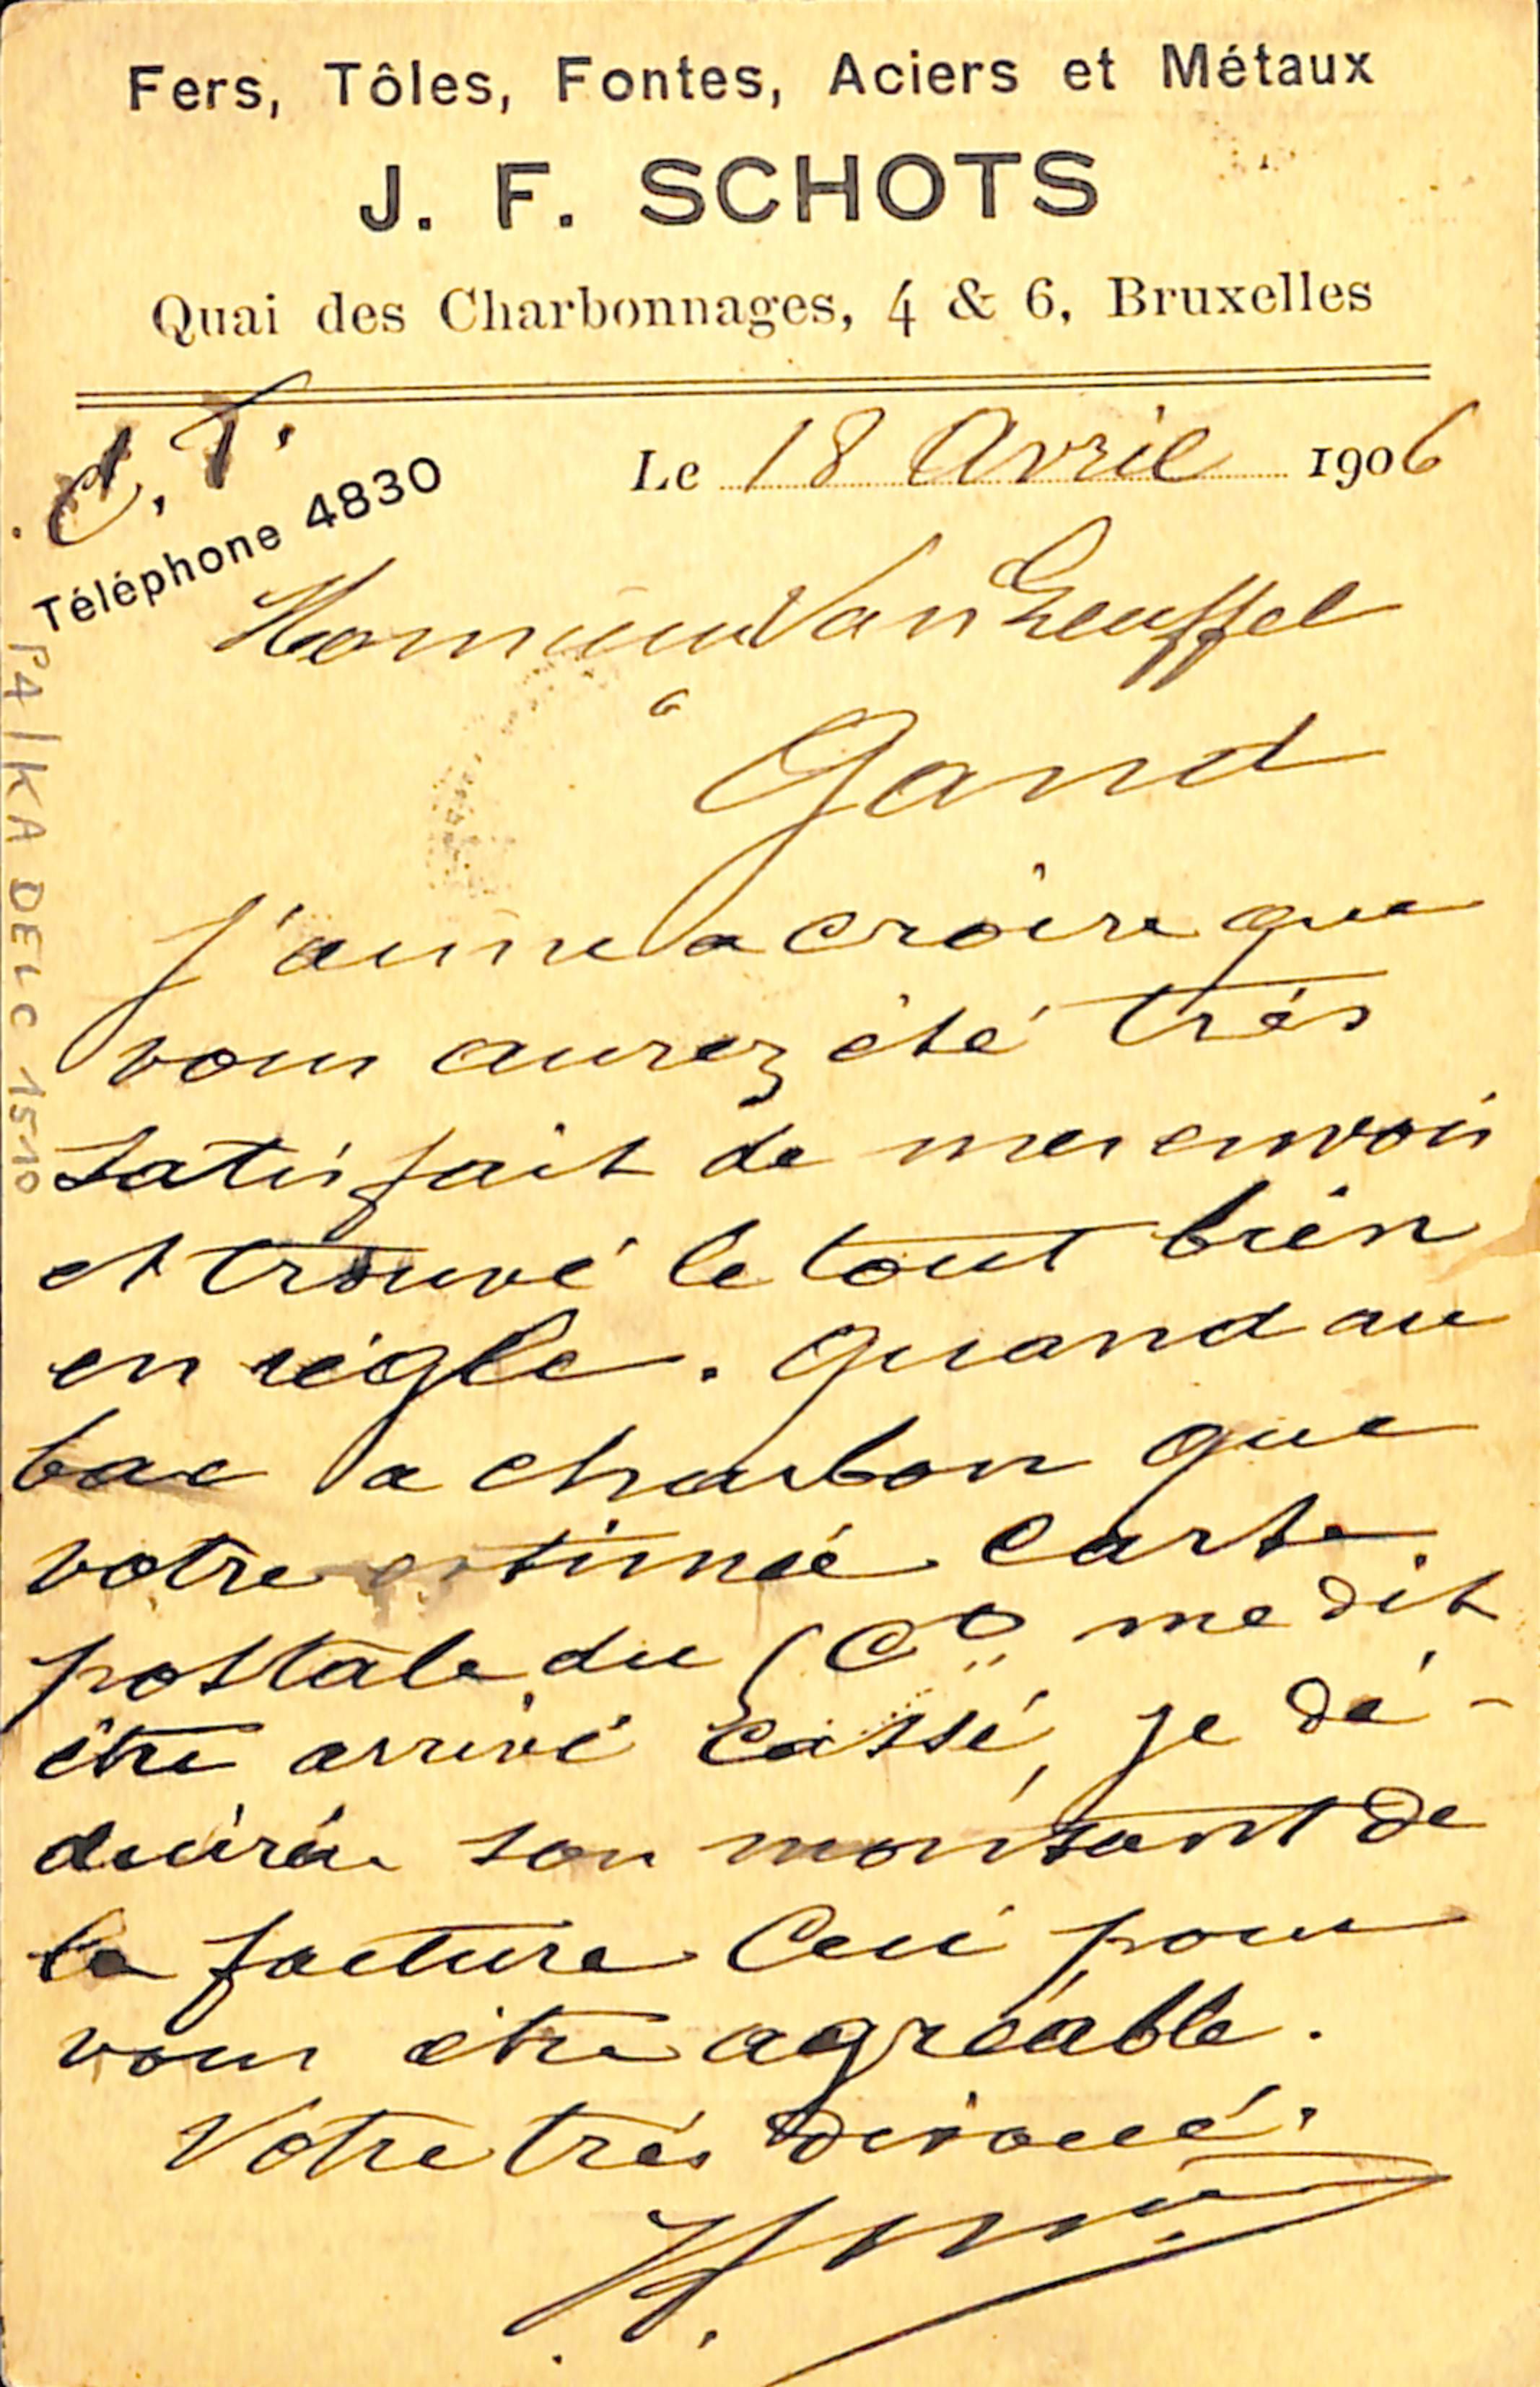 Fers, Tôles, Fontes, Aciers et Métaux
J. F. SCHOTS
Quai des Charbonnages, 4 & 6, Bruxelles
Le 18 Avril 1906
Téléphone 4830
Van
à
Gand
J'aime a croire que
vous aurez été trés
satisfait de mes envois
et trouvé le tout bien
en règle. Quand au
bac a charbon que
votre estimée carte
postale du Cº me dit
être arrivé cassé, je dé-
duirai son montant de
la facture Ceci pour
vous être agréable.
Votre très dévoué.